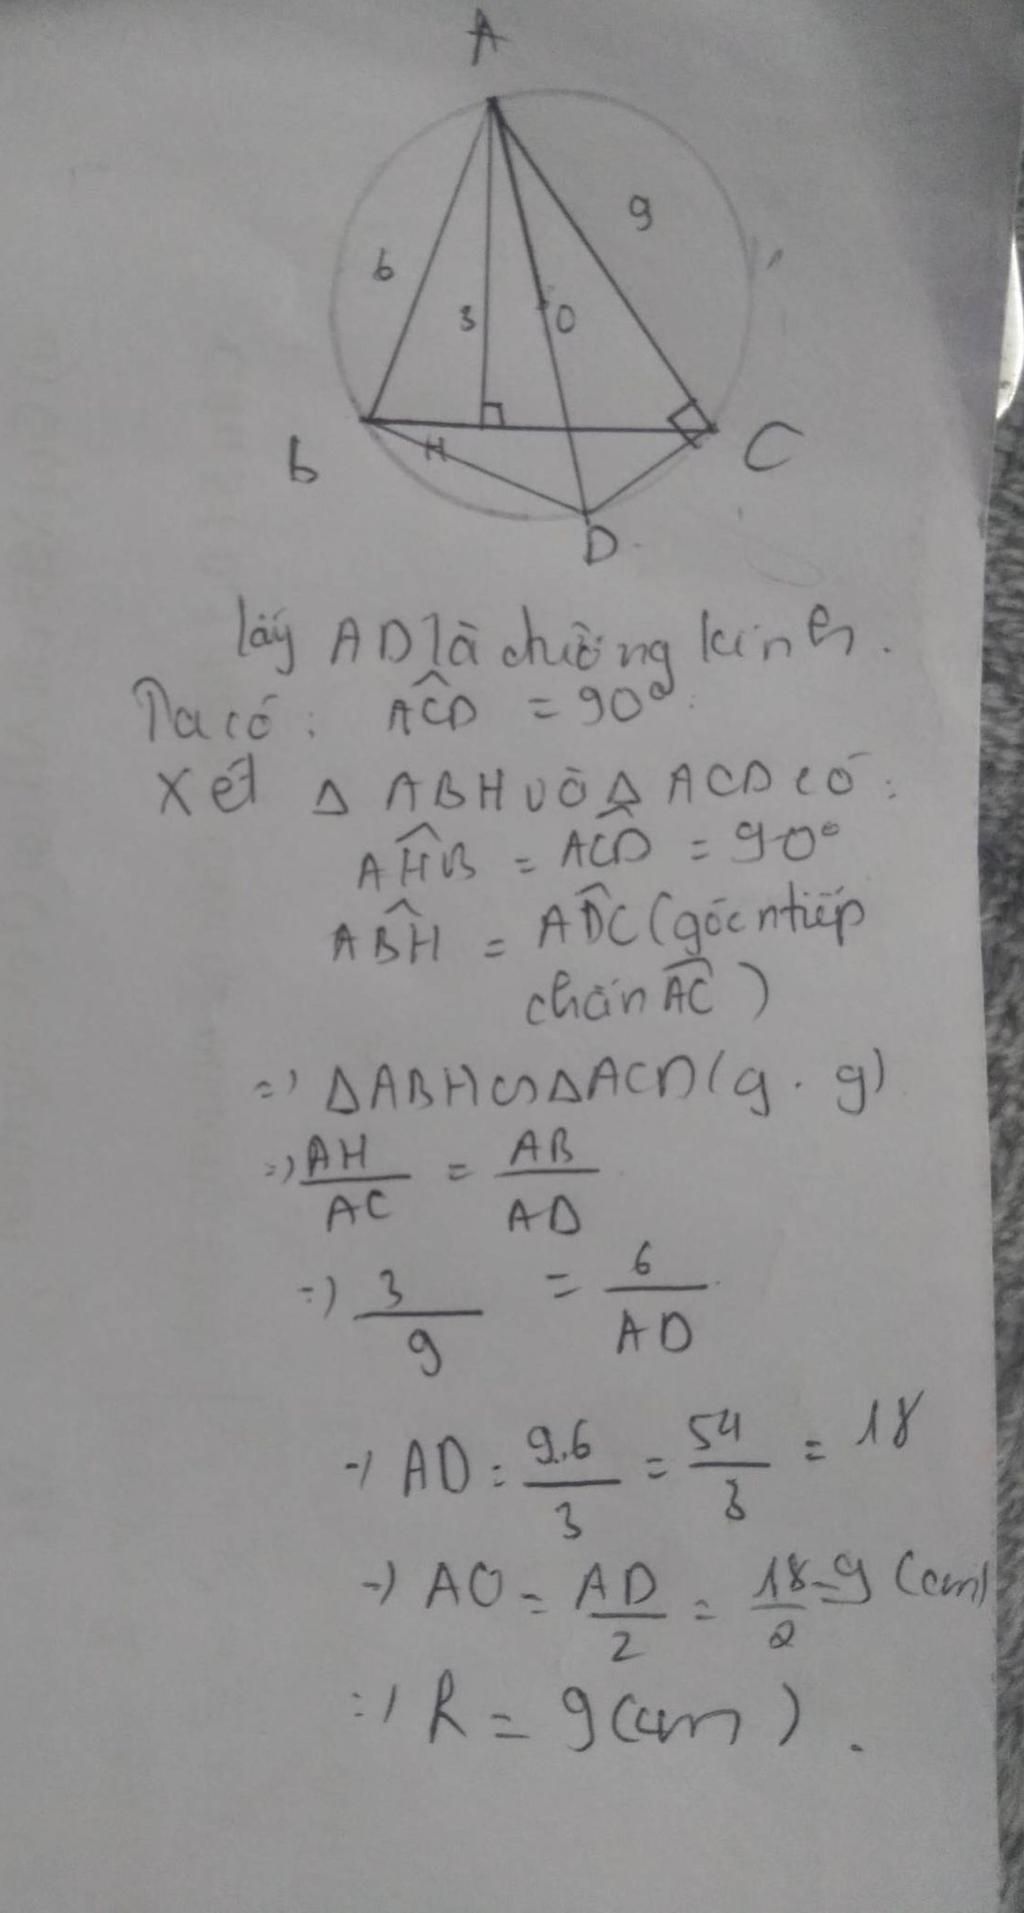 A
6
9
3
O
B
H
C
D
lấy AD là đường kính.
Ta có: ACD = 90°.
Xét Δ ABH và Δ ACD có:
AHB = ACD = 90°
ABH = ADC (góc ntiếp
chắn AC)
=> ΔABH ∽ ΔACD (g.g)
=> AH/AC = AB/AD
=> 3/9 = 6/AD
=> AD = 9.6/3 = 54/3 = 18
=> AO = AD/2 = 18/2 = 9 (cm)
=> R = 9 (cm).